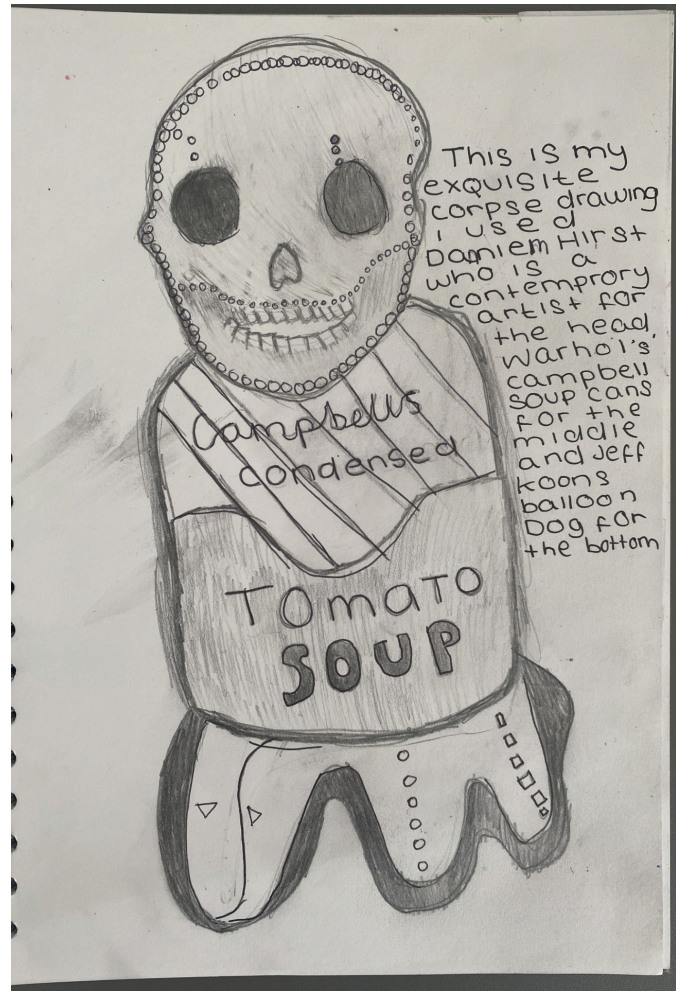 This is my
exquisite
corpse drawing
i used
Damiem Hirst
who is a
contemprory
artist for
the head
Warhol's
campbell
soup cans
for the
middle
and Jeff
koons
balloon
Dog for
the bottom
Campbells
condensed
Tomato
SOUP